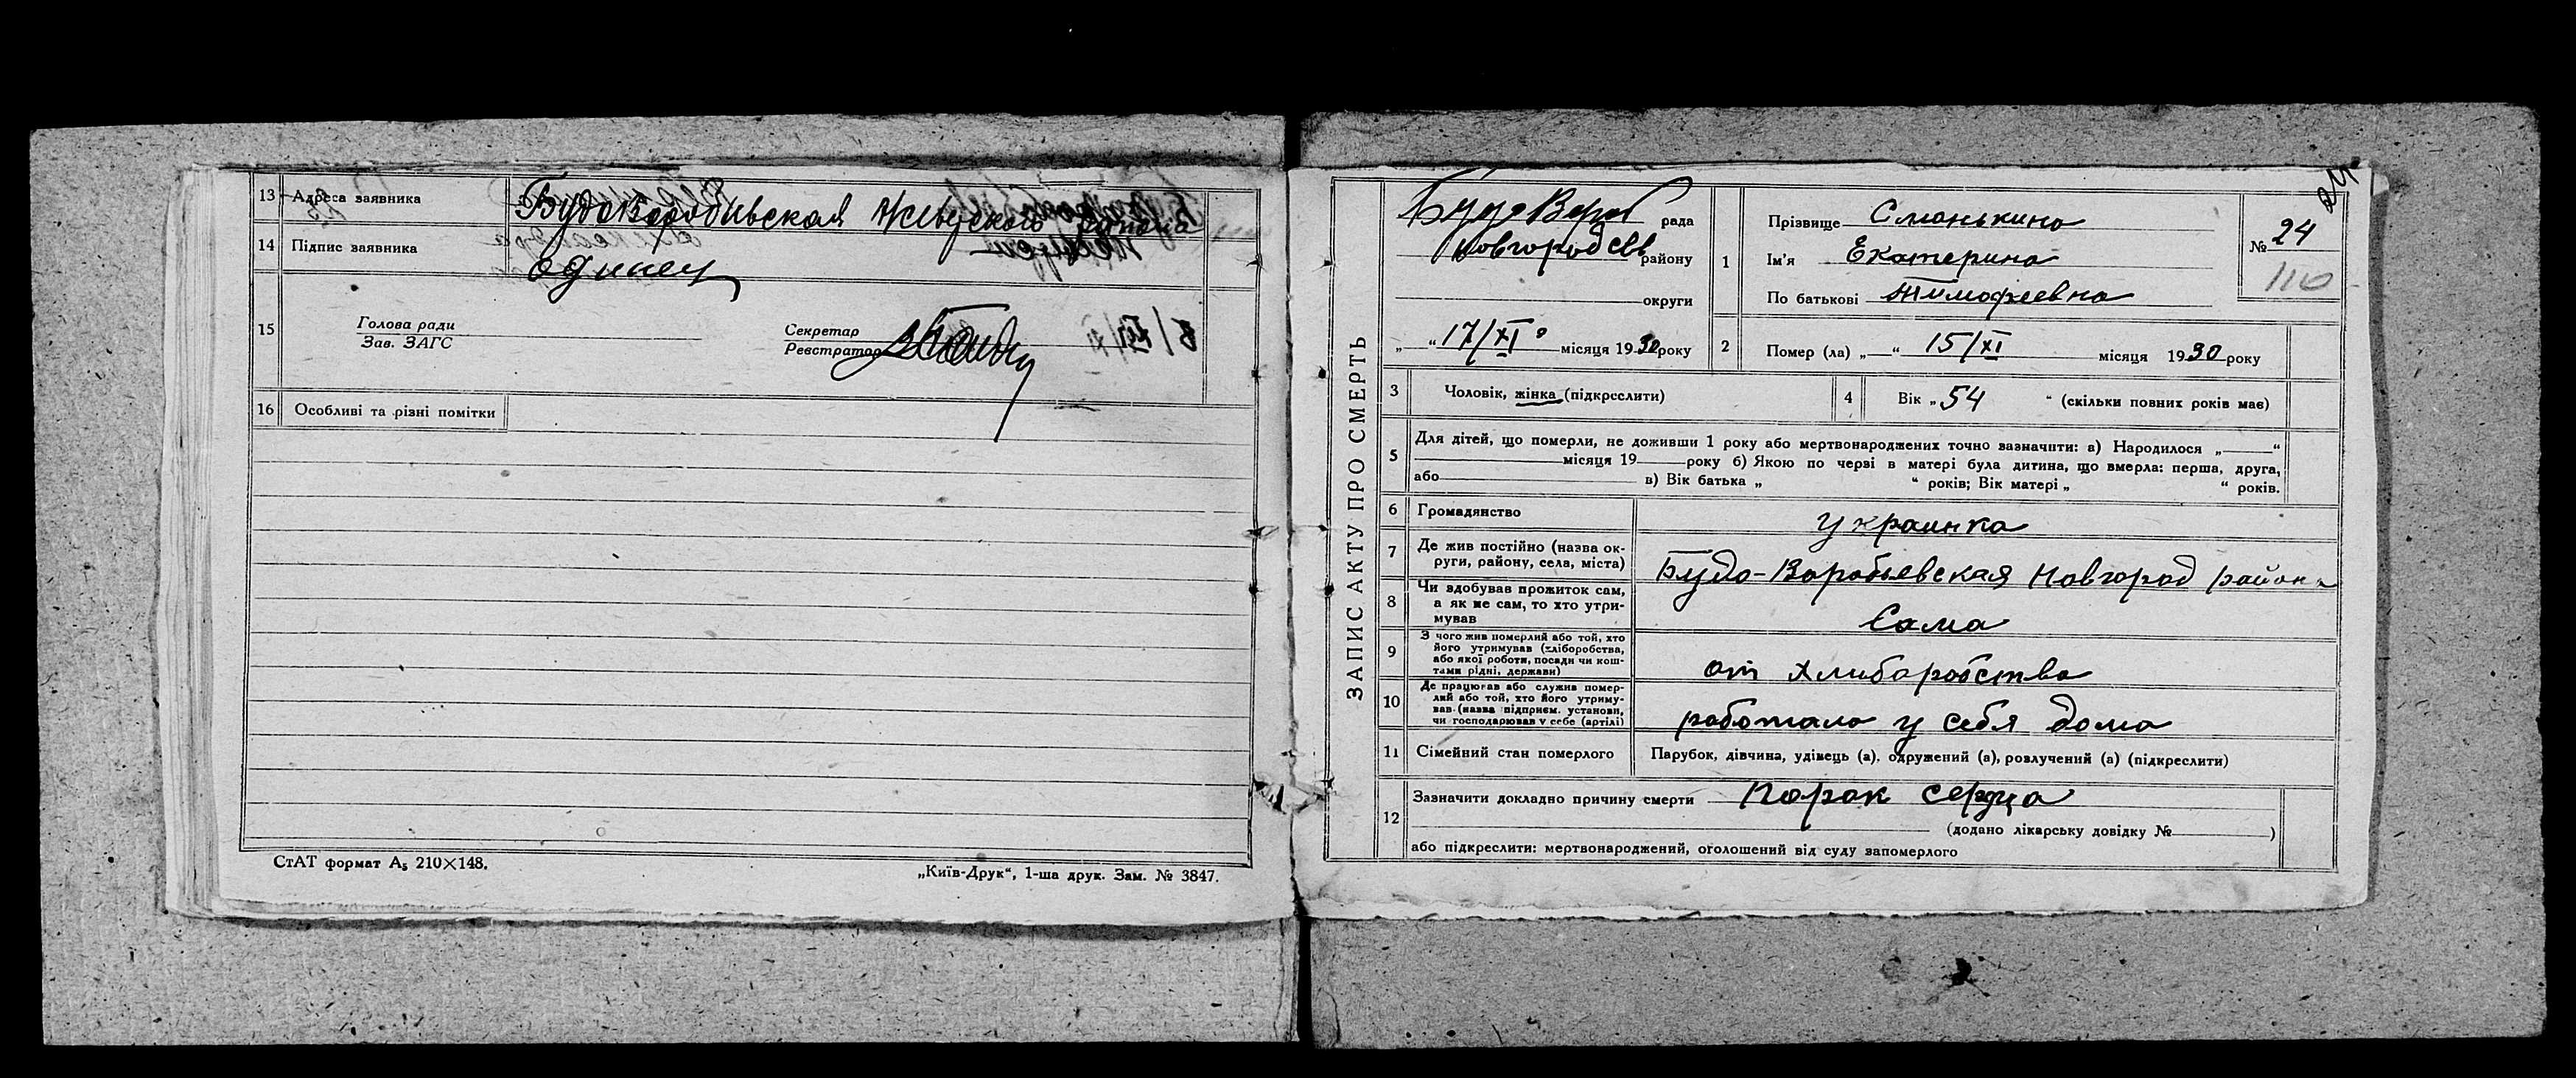 13 Адреса заявника Будо Воробиевская
14 Підпис заявника
одинец
15 Голова ради
Зав. ЗАГС
Секретар
Реєстратор
16 Особливі та різні помітки
СтАТ формат А5 210×148.
„Київ-Друк“, 1-ша друк. Зам. № 3847.
ЗАПИС АКТУ ПРО СМЕРТЬ
24
БудоВороб рада
Новгород Сев району
округи
„ “ 17/XI місяця 1930 року
1 Прізвище Сманькина
Ім'я Екатерина
По батькові Тимофеевна
№ 24
110
2 Помер (ла) „—“ 15/XI місяця 1930 року
3 Чоловік, жінка (підкреслити)
4 Вік „ 54 “ (скільки повних років має)
5 Для дітей, що померли, не доживши 1 року або мертвонароджених точно зазначити: а) Народилося „ “
місяця 19 року б) Якою по черві в матері була дитина, що вмерла: перша, друга,
або в) Вік батька „ “ років; Вік матері „ “ років.
6 Громадянство украинка
7 Де жив постійно (назва ок-
руги, району, села, міста) Будо-Воробьевская Новгород района
8 Чи здобував прожиток сам,
а як не сам, то хто утри-
мував Сама
9 З чого жив померлий або той, хто
його утримував (хліборобства,
або якої роботи, посади чи кош-
тами рідні, держави) от хлиборобства
10 Де працював або служив помер-
лий або той, хто його утриму-
вав (назва підприєм. установи,
чи господарював у себе (артілі) работала у себя дома
11 Сімейний стан померлого Парубок, дівчина, удівець (а), одружений (а), розлучений (а) (підкреслити)
12 Зазначити докладно причину смерти Порок сердца
(додано лікарську довідку № )
або підкреслити: мертвонароджений, оголошений від суду запомерлого